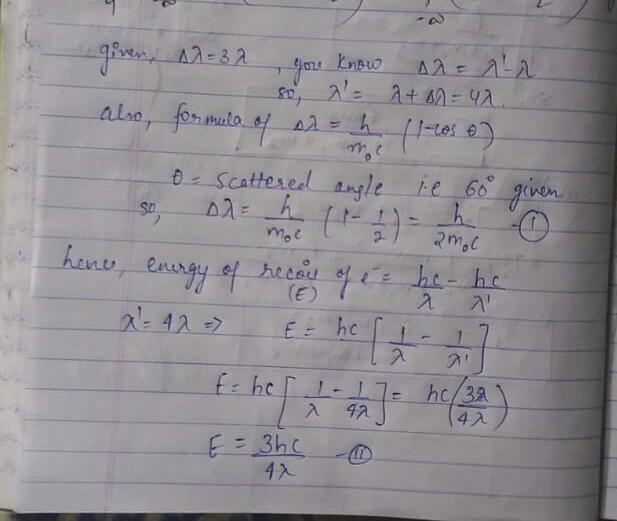 -∞
given, Δλ=3λ , you know Δλ = λ'-λ
so, λ' = λ+Δλ=4λ.
also, formula of Δλ = h/m₀c (1-cos θ)
θ = scattered angle i.e 60° given
so, Δλ = h/m₀c (1-1/2) = h/2m₀c -Ⓘ
henc, energy of recoil of e⁻= hc/λ - hc/λ'
(E)
λ'= 4λ => E = hc [1/λ - 1/λ']
E = hc [1/λ - 1/4λ] = hc(3/4λ)
E = 3hc/4λ -Ⓘⓘ